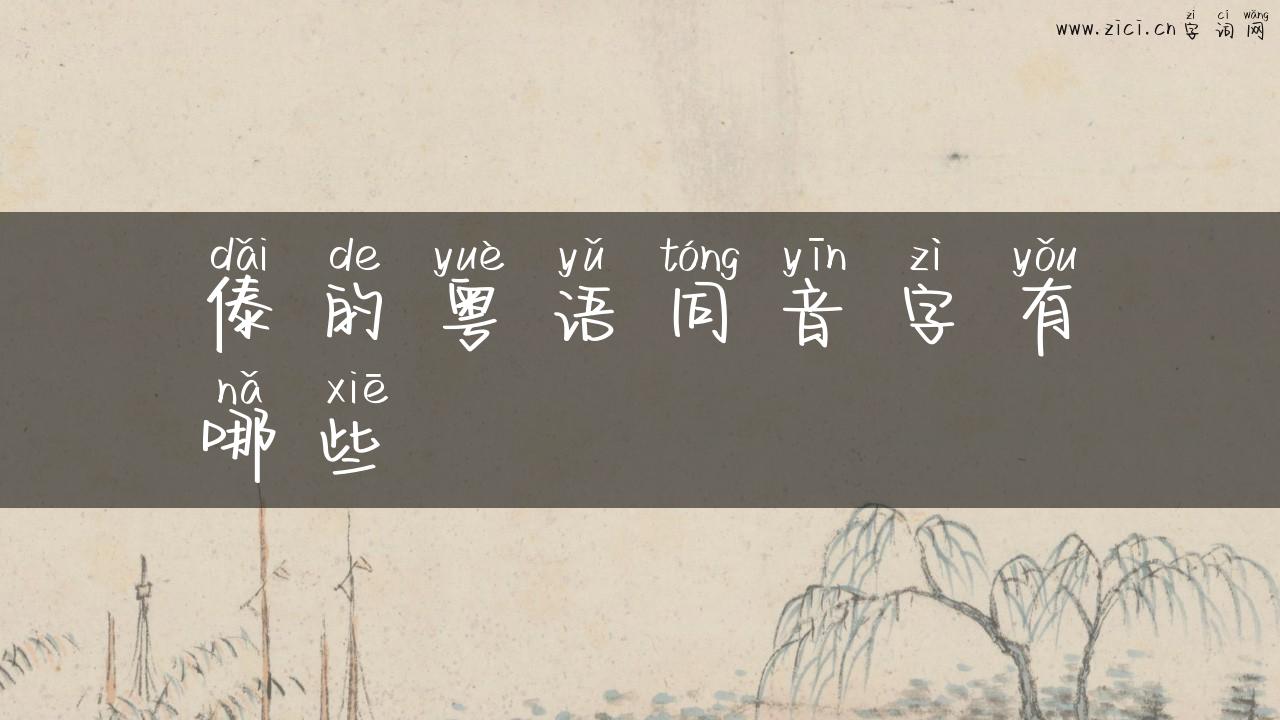 zì cí wǎng
www.zici.cn 字 词 网
dǎi de yuè yǔ tóng yīn zì yǒu
傣 的 粤 语 同 音 字 有
nǎ xiē
哪 些